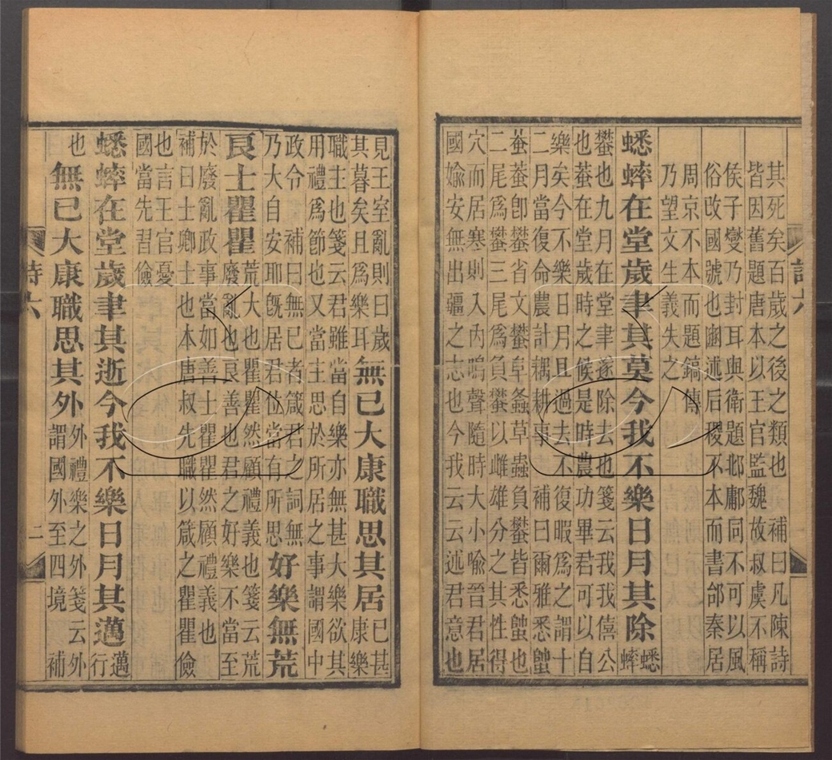 其死矣百歲之後之類也 補曰凡陳詩
皆因舊題唐本以王官監魏故叔虞不稱
侯子燮乃封耳與衛題邶鄘同不可以風
俗改國號也豳述后稷不本而書邰秦居
周京不本而題鎬傳
乃望文生義失之
蟋蟀在堂歲聿其莫今我不樂日月其除 蟋蟀
蠜也九月在堂聿遂除去也箋云我我僖公
也蛬在堂歲時之候是時農功畢君可以自
樂矣今不樂日月且過去不復暇爲之謂十
二月當復命農計耦耕事 補曰爾雅悉䗐
蛬蛬卽蠜省文蠜阜螽草蟲負蠜皆悉䗐也
二尾爲蠜三尾爲負蠜以雌雄分之其性得
穴而居寒則入內鳴聲隨時大小喻晉君居
國媮安無出疆之志也今我云云述君意也
詩六
見王室亂則曰歲
其暮矣且爲樂耳
無已大康職思其居 已甚康樂
職主也箋云君雖當自樂亦無甚大樂欲其
用禮爲節也又當主思於所居之事謂國中
政令 補曰無已者箴君之詞無
乃大自安耶旣居君位當有所思
好樂無荒
良士瞿瞿
荒大也瞿瞿然顧禮義也箋云荒
廢亂也良善也君之好樂不當至
於廢亂政事當如善士瞿瞿然顧禮義也
補曰士卿士也本唐叔先職以箴之瞿瞿儉
也言王官憂
國當先習儉
蟋蟀在堂歲聿其逝今我不樂日月其邁 邁行
也 無已大康職思其外
外禮樂之外箋云外
謂國外至四境 補
詩六
二